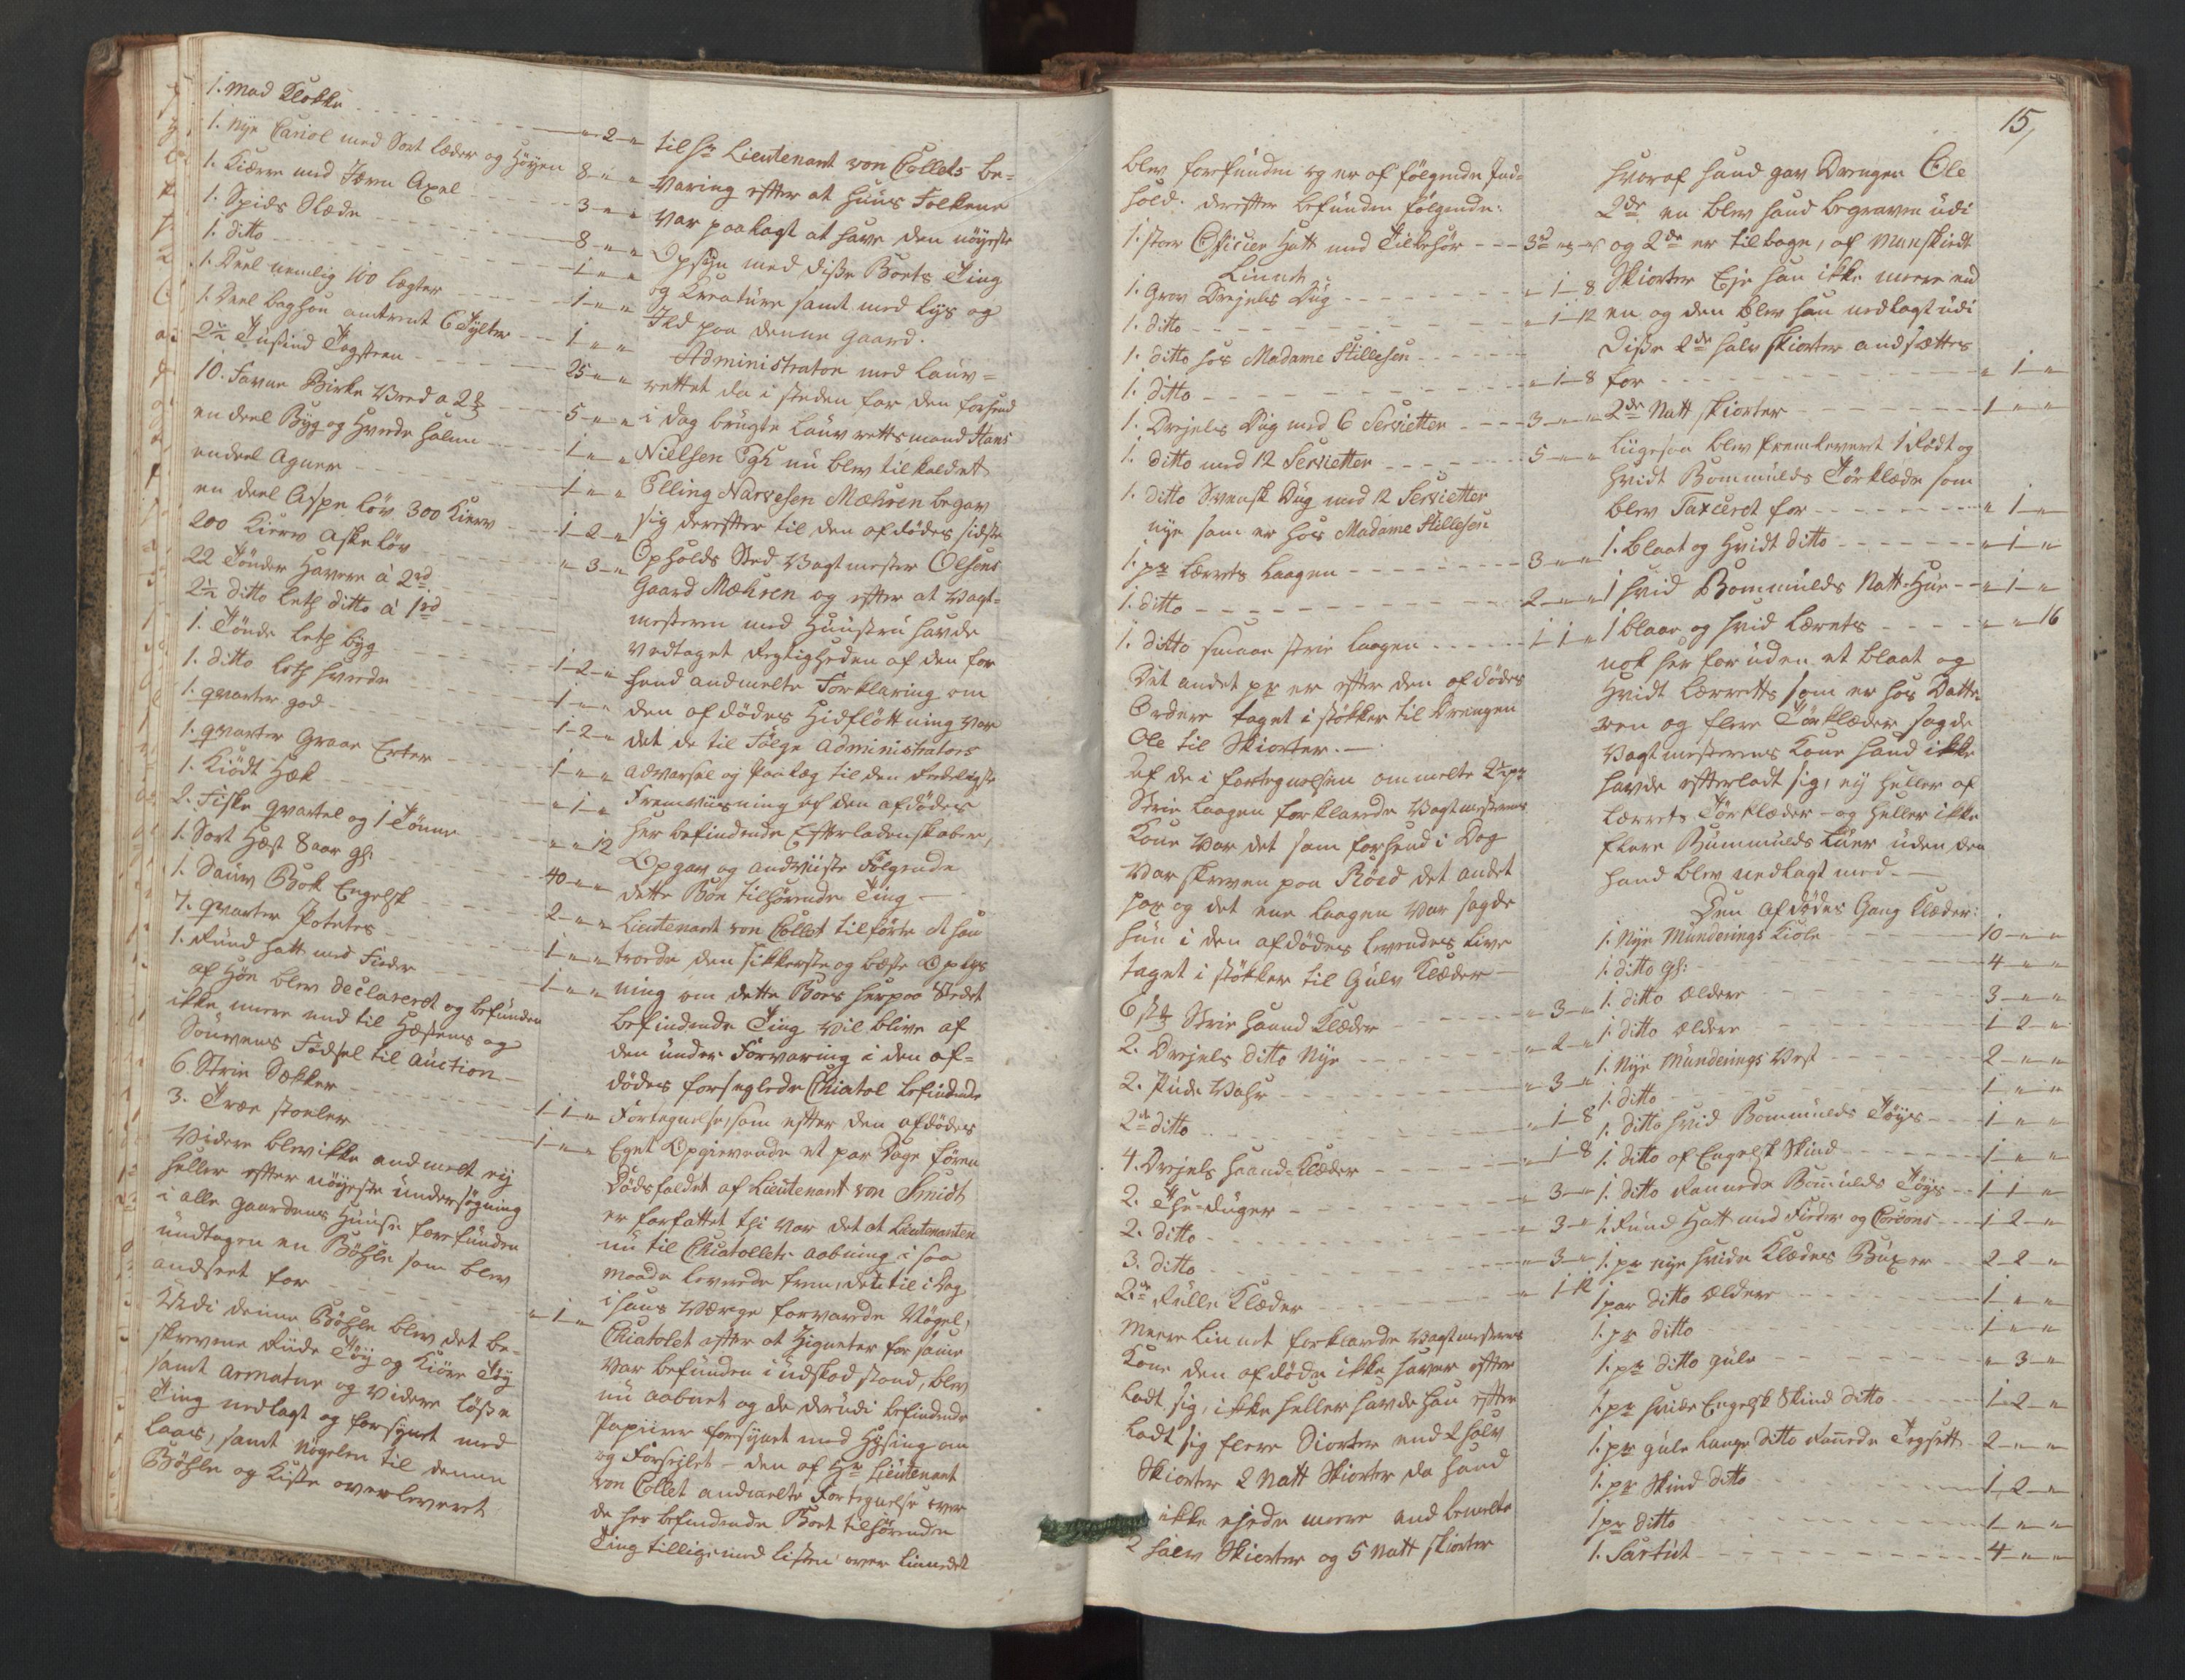 1. Mad Klokke - - - " 2 "
1. Nye Cariol med Sort læder og Höyen 8 " "
1. Kiærre med Jern Axel - - - 3 " "
1. Spids Slæde - - - 8 " "
1. ditto - - - 1 " "
1. Deel nemlig 100 lægter - - - 1 " "
1. Deel baghon omtrent 6 Tylter - - - 1 " "
2½ Tusind Tagsteen - - - 25 " "
10. Favne Birke Veed a 2 - - - 5 " "
en deel Byg og Hvede halm - - - 1 " "
en deel Agner - - - 1 " "
en deel Aspe löv 300 Kierv - - - 1 2 "
200 Kierv Aske löv - - - " 3 "
22 Tönder Havre à 2rd
2½ ditto leth ditto à 1rd
1. Tönde leth byg - - - 1 2 "
1. ditto leth hvede - - - 1 " "
1. qvarter god - - - 1 2 "
1. qvarter Graae Erter - - - 1 " "
1. Kiödt Hæk - - - " 1 "
2. Fiske qvartel og 1 Tönne - - - " " 12
1. Sort Hest 8 aar gl: - - - 40 " "
1. Sauv Bok Engelsk - - - 2 " "
7. qvarter Potetes - - - 1 " "
1. Rund hatt med Fieder - - - 1 " "
af Höe blev declareret og befunden
ikke mere end til Hæstens og
Souvens Födsel til Auction
6. Strie Sækker - - - 1 1 "
3. Træe stoeler - - - 1 " "
Videre blev ikke andmelt ey
heller efter nöyeste undersögning
i alle gaardens Huuse forefunden
undtagen en Böhle som blev
andseet for - - - " 1 "
Udi denne Böhle blev det be-
skrevene Ride Töy og Kiöre Töy
samt Armatur og videre löse
Ting nedlagt og forsynet med
laas, samt Nögelen til denne
Böhle og Kiste overleveret
til Hr Lieutenant von Collets be-
varing efter at Huus Folkene
var paalagt at have den nöyeste
Opsyn med disse Boets Ting
og Kreature samt med Lys og
Ild paa denne Gaard.
Administrator med Lauv-
rettet da i steden for den forhend
i dag brugte Lauv rettsmand Hans
Nielsen Egh nu blev tilkaldet
Elling Narvesen Mæhren begav
sig derefter til den afdödes sidste
Opholds Sted Vagtmester Olsens
Gaard Mæhren og efter at Vagt-
mesteren med Huustru havde
vedtaget Rigtigheden af den for
hend andmelte Forklaring om
den afdödes Hidflöttning var
det de til Fölge Administrators
Advarsel og Paalæg til den Redeligste
Fremviisning af den afdödes
her befindende Efterladenskaber,
Opgav og andviiste Fölgende
dette Boe tilhörende Ting
Lieutenant von Collet tilförte at han
troede den sikkerste og beste Oplys
ning om dette Boes her paa Stedet
befindende Ting vil blive af
den under Forvaring i den af-
dödes forseglede Chiatol befindende
Fortegnelse, som efter den afdödes
Eget Opgivende et par Dage fören
Dödsfaldet af Lieutenant von Smidt
er forfattet thi var det at Lieutenanten
nu til Chiatollets aabning i saa
maade leverede frem, den til i Dag
i hans Værge forvarede Nögel,
Chiatolet efter at Zigneter for samme
var befunden i uskad stand, blev
nu aabnet og de derudi befindende
Papiirer forsynet med Hysing om
og Forseglet - den af Hr Lieutenant
von Collet andmelte Fortegnelse over
de her befindende Boet tilhörende
Ting tilligemed Listen over Linnedet
15,
blev forefunden og er af fölgende Ind-
hold. derefter befunden fölgende:
1. stor Officier Hatt med Tilbehör - - - 3
Linnet
1. Grov Drejels Dug - - - " 1 8
1. ditto - - - " 1 12
1. ditto hos Madame Stillesen - - -
1. ditto - - - " 1 8
1. Drejels Dug med 6 Servietter - - - 3 " "
1. ditto med 12 Servietter - - - 5 " "
1. ditto Svensk Dug med 12 Servietter
nye som er hos Madame Stillesen
1. pr Lærrets Laagen - - - 3 " "
1. ditto - - - 2 " "
1. ditto smaae strie Laagen - - - 1 1 "
Det andet pr er efter den afdödes
Ordere taget i stökker til Drengen
Ole til Skiorter.
Af de i fortegnelsen ommelte 2½ pr
Strie Laagen forklarede Vagtmesterens
Kone var det som forhend i Dag
var skreven paa Röed det andet
par og det ene Laagen var sagde
hun i den afdödes levendes Live
taget i stökker til Gulv Klæder
6 stk Strie haand Klæder - - - " 3 "
2. Drejels ditto Nye - - - " 2 "
2. Pude Vahr - - - " 3 "
2de ditto - - - " 1 8
4. Drejels haand-Klæder - - - " 1 8
2. The-duger - - - " 3 "
2. ditto - - - " 3 "
3. ditto - - - " 3 "
2de Rulle Klæder - - - " 1 12
meere Linnet forklarede Vagtmesterens
Kone den afdöde ikke haver efter
ladt sig, ikke heller havde han efter
ladt sig flere Siorter end 2 halv
Skiorter 2 Natt Skiorter da hand
ikke ejede mere end bemelte
2 halv Skiorter og 5 Natt skiorter
hvoraf hand gav Drengen Ole
2de en blev hand begraven udi
og 2de er tilbage, af Manskiedt
Skiorter Eje han ikke meere end
en og den blev han nedlagt udi
disse 2de halv skiorter andsættes
for - - - " 1 "
2de Natt skiorter - - - 1 " "
Liigesaa blev fremleveret 1 Rödt og
Hvidt Bommulds Törklæde som
blev Taxceret for - - - " 1 "
1. Blaat og Hvidt ditto - - - " 1 "
1 hvid Bommulds Natt-Hue - - - " 1 "
1 blaae og hvid Lærrets - - - " " 16
nok her foruden et blaat og
Hvidt Lærretts som er hos Datte-
ren og flere Törklæder sagde
Vagtmesterens Kone hand ikke
havde efterladt sig, ey heller af
Lærrets Törklæder - og heller ikke
flere Bummulds Luer uden den
hand blev nedlagt med.
Den afdödes Gang Klæder:
1. Nye Munderings Kiole - - - 10 " "
1. ditto gl: - - - 4 " "
1. ditto ældere - - - 3 " "
1. ditto ældere - - - 1 2 "
1. Nye Munderings Vest - - - 2 " "
1. ditto - - - 1 " "
1. ditto hvid Bommulds Töyes - - - 1 " "
1. ditto af Engelsk Skind - - - 1 " "
1. ditto Rannede Bommulds Töys - - - 1 1 "
1. Rund Hatt med Fieder og Cordons - - - 1 2 "
1. pr nye hvide Klædes Buxer - - - 2 2 "
1 par ditto ældere - - - 1 " "
1. pr ditto - - - 1 " "
1. pr ditto gule - - - " 3 "
1. pr hvide Engelsk Skind ditto - - - 1 2 "
1. pr gule lange ditto Rannede - - - 2 " "
1. pr Skind ditto - - - 1 2 "
1 pr ditto - - - 1 " "
1. Sartut - - - 4 " "